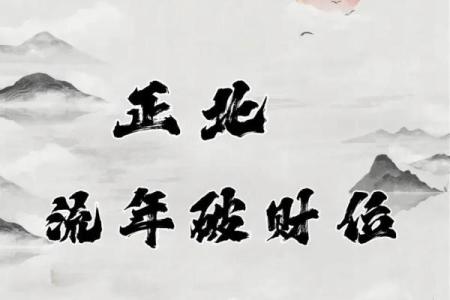 正北
流年破财位